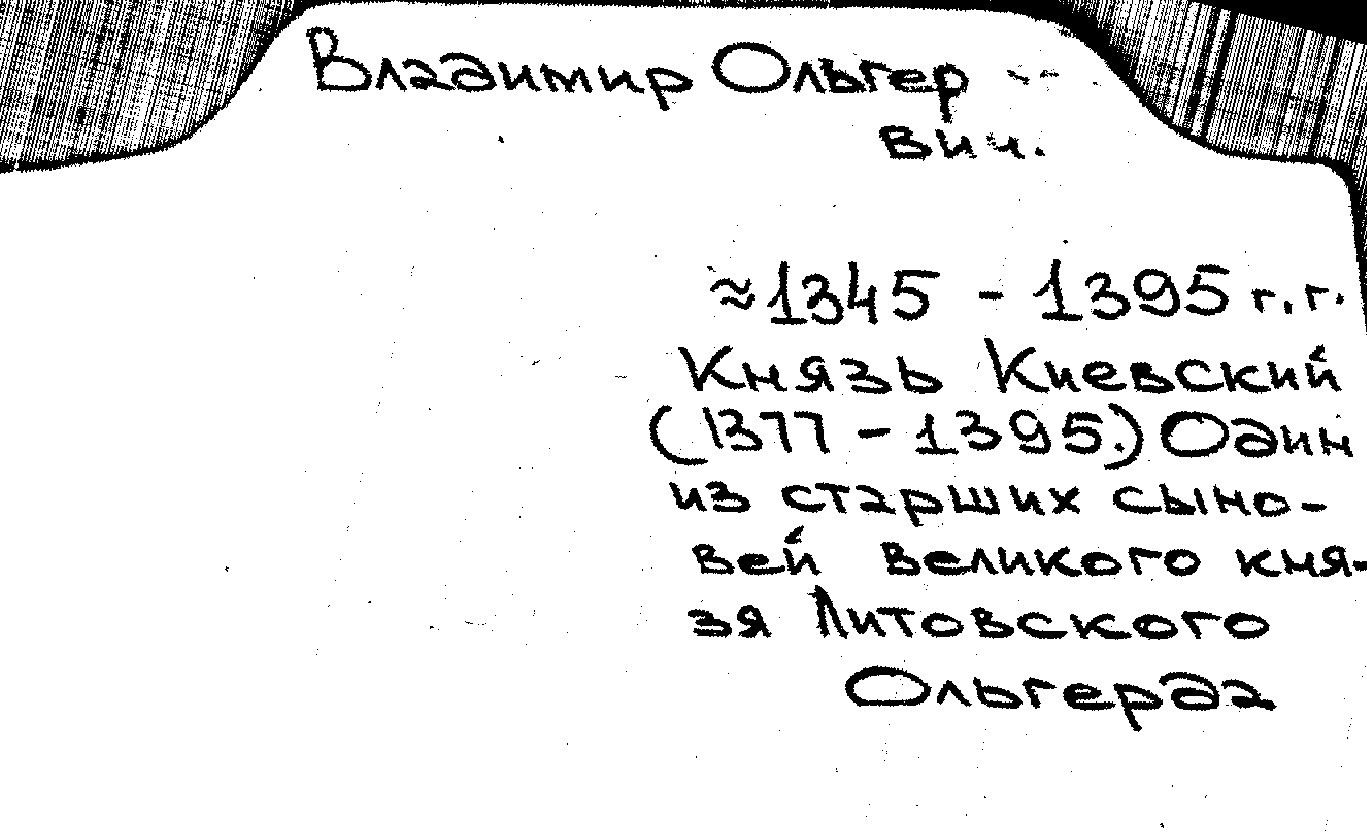 Владимир Ольгер
вич.
≈1345 - 1395 г.г.
Князь Киевский
(1377 - 1395.) Один
из старших сыно-
вей великого кня-
зя Литовского
Ольгерда